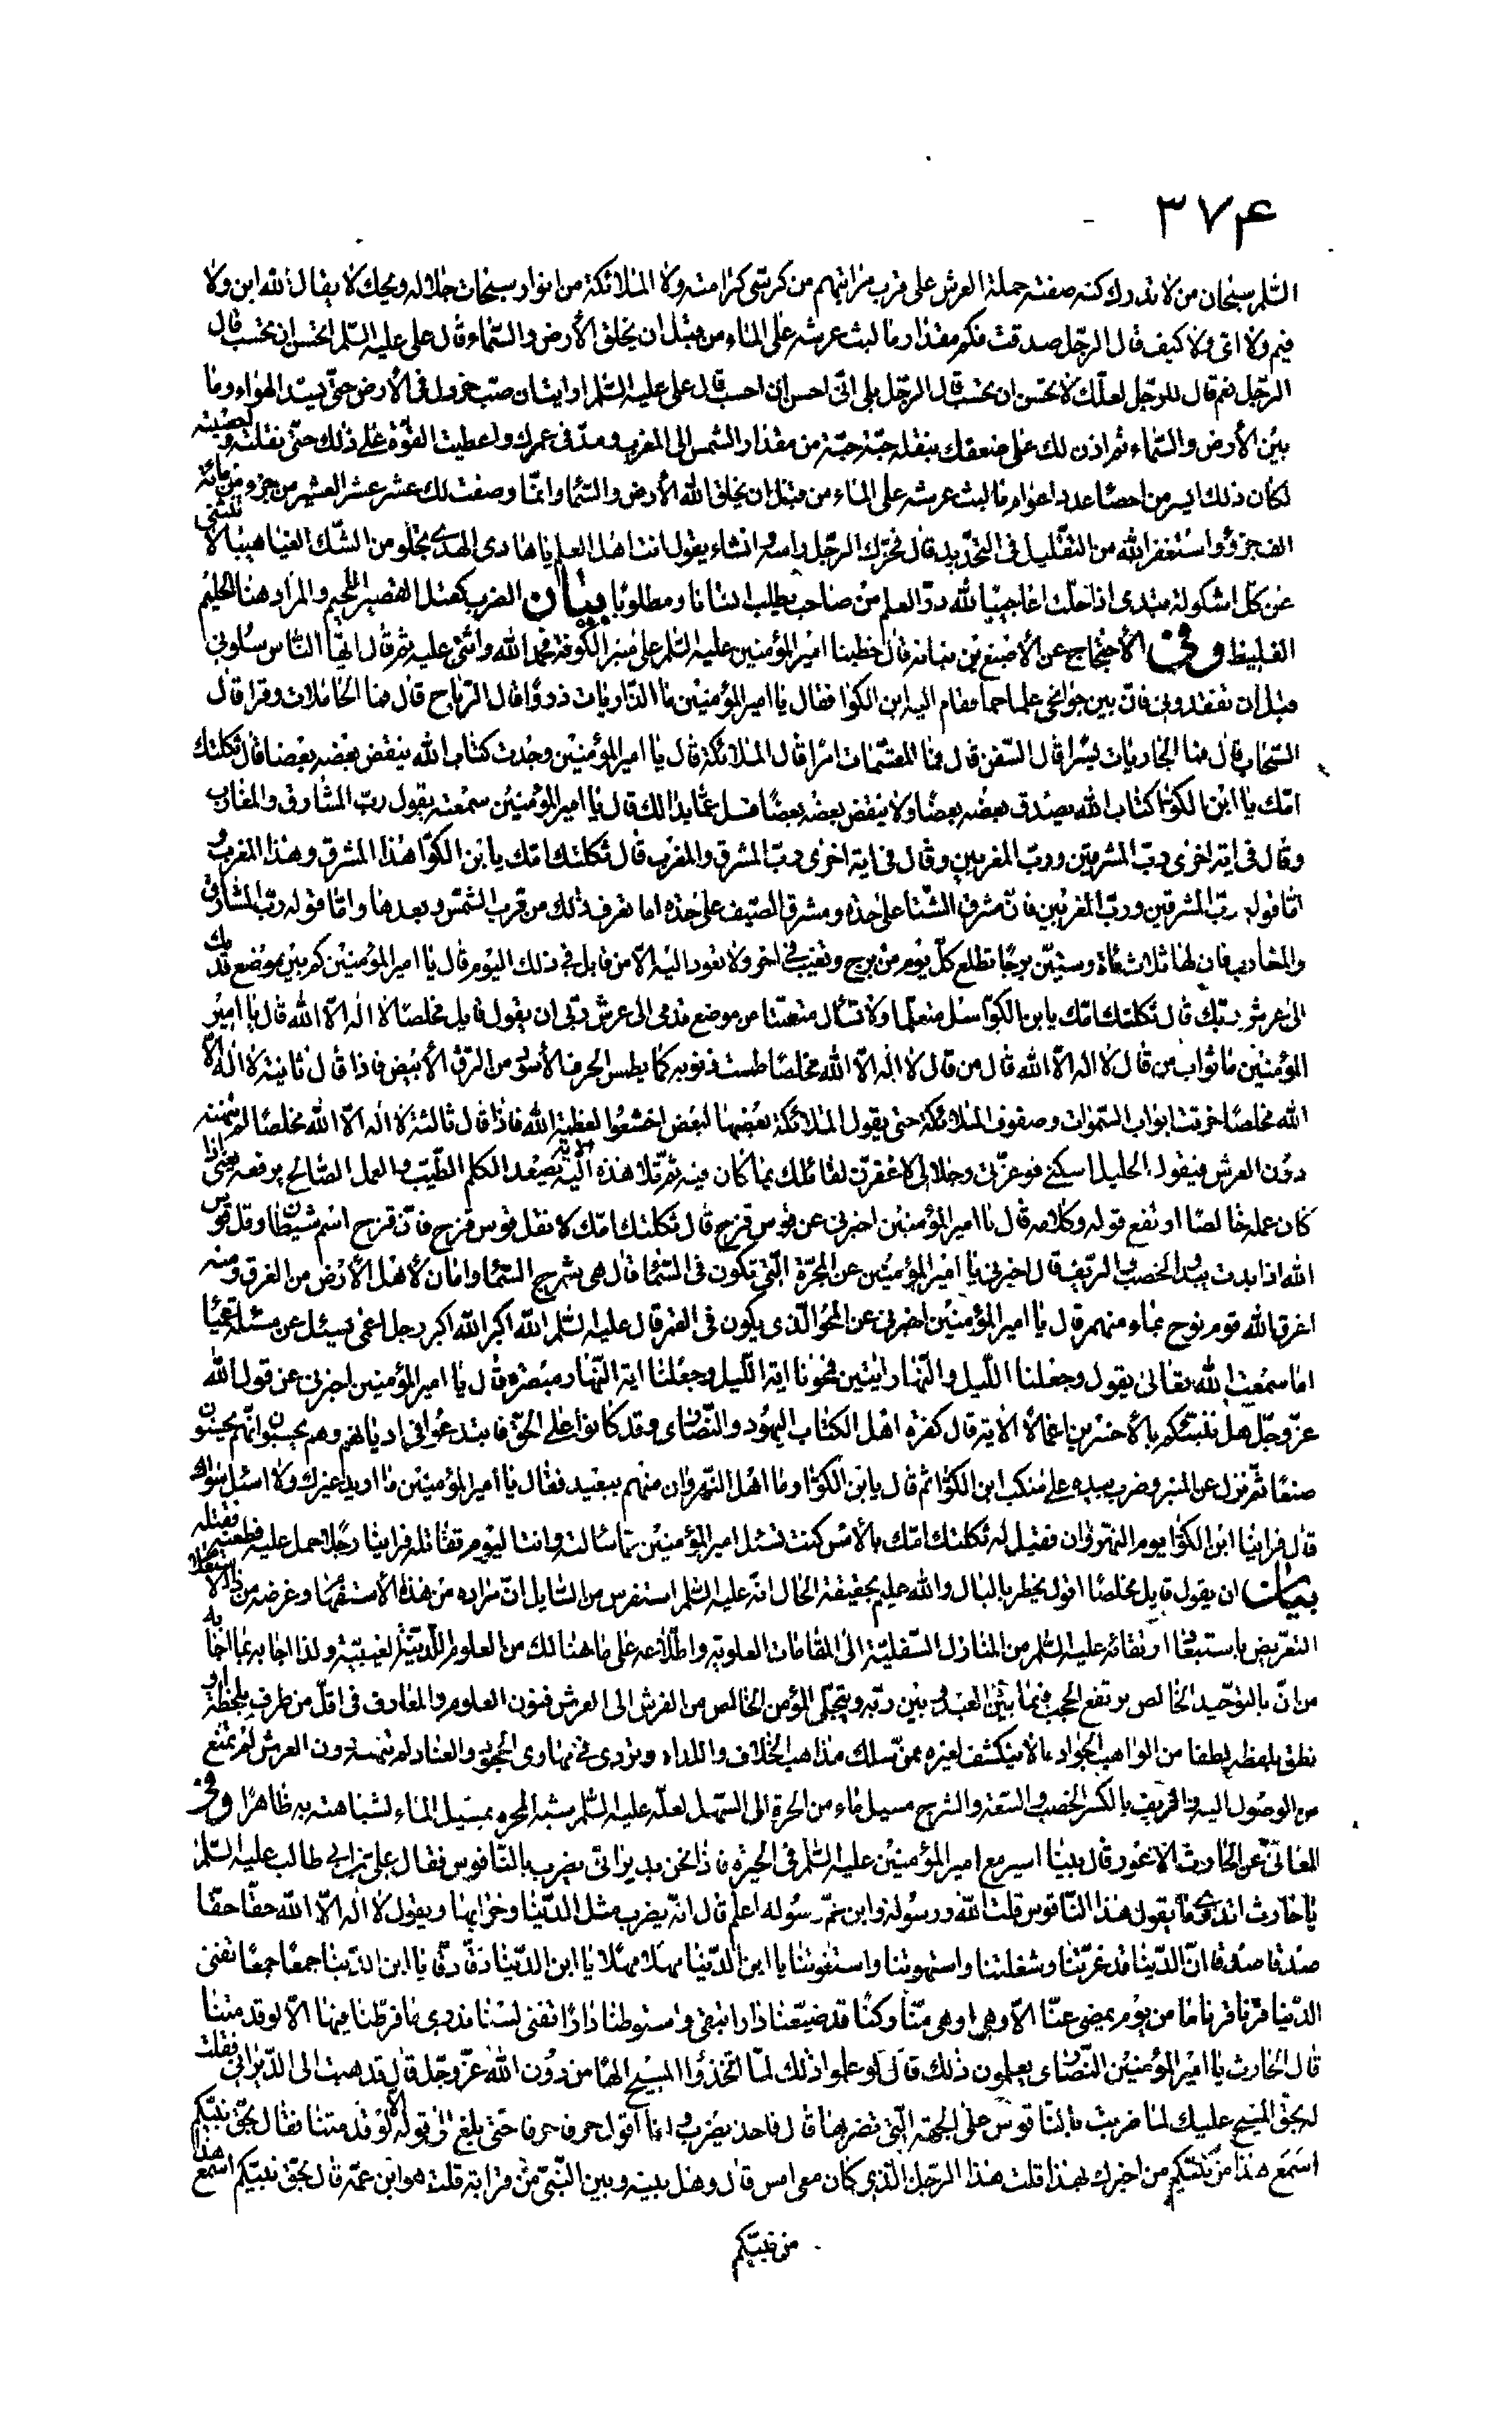 ۳۷۴
السّلم سبحان من لا تدرك كنه صفته حملة العرش على قرب مراتبهم من كرسى كرامته ولا الملائكة من انوار سبحات جلاله ويحك لا يقال لله اين ولا
فيم ولا اى ولا كيف قال الرجل صدقت فكم مقدار ما لبث عرشه على الماء من قبل ان يخلق الأرض والسّماء قال على عليه السّلم اتحسن ان تحسب قال
الرجل نعم قال للرجل لعلك لا تحسن ان تحسب قال الرجل بلى انى احسن ان احسب قال على عليه السّلم ارايت ان صب خردل فى الأرض حتى يسد الهواء وما
بين الأرض والسّماء ثم اذن لك على ضعفك بنقله حبّة حبّة من مقدار الشمس الى المغرب ومدّ فى عمرك واعطيت القوّة على ذلك حتى نقلته واحصيته
لكان ذلك ايسر من احصاء عدد اعوام ما لبث عرشه على الماء من قبل ان يخلق الله الأرض والسّماء وانما وصفت لك عشر عشر العشير من جزء من مائة
الف جزء واستغفر الله من التقليل فى التحديد قال فحرّك الرجل راسه وانشاء يقول انت اهل العلم يا هادى الهدى تجلو من الشك الغياهيبا لا تنثنى
عن كل اشكولة تبدى اذا حلّت اعاجيبا لله درّ العلم من صاحب يطلب انسانا ومطلوبا بيان
الغليظ وفى الأحتجاج عن الأصبغ بن نباته قال خطبنا امير المؤمنين عليه السّلم على منبر الكوفة فحمد الله واثنى عليه ثم قال ايها الناس سلونى
قبل ان تفقدونى فان بين جوانحى علما جما فقام اليه ابن الكوا فقال يا امير المؤمنين ما الذاريات ذروا قال الرياح قال فما الحاملات وقرا قال
السحاب قال فما الجاريات يسرا قال السفن قال فما المقسّمات امرا قال الملائكة قال يا امير المؤمنين وجدت كتاب الله ينقض بعضه بعضا قال ثكلتك
امّك يا ابن الكوا كتاب الله يصدق بعضه بعضا ولا ينقض بعضه بعضا فسل عمّا بدا لك قال يا امير المؤمنين سمعته يقول ربّ المشارق والمغارب
وقال فى اية اخرى ربّ المشرقين وربّ المغربين وقال فى اية اخرى ربّ المشرق والمغرب قال ثكلتك امّك يا بن الكوّا هذا المشرق وهذا المغرب و
امّا قوله ربّ المشرقين وربّ المغربين فانّ مشرق الشتا على حدة ومشرق الصيف على حدة اما تعرف ذلك من قرب الشمس وبعدها وامّا قوله ربّ المشارق
والمغارب فان لها ثلاثمأة وستّين برجا تطلع كلّ يوم من برج وتغيب فى اخر ولا تعود اليه الاّ من قابل فى ذلك اليوم قال يا امير المؤمنين كم بين موضع قدمك
الى عرش ربّك قال ثكلتك امّك يابن الكوّا سل متعلّما ولا تسأل متعنّتا من موضع قدمى الى عرش ربّى ان يقول قايل مخلصا لا اله الاّ الله قال يا امير
المؤمنين ما ثواب من قال لا اله الاّ الله قال من قال لا اله الاّ الله مخلصا طمست ذنوبه كما يطمس الحرف الأسود من الرّق الأبيض فاذا قال ثانية لا اله الاّ
الله مخلصا خرقت ابواب السّموات وصفوف الملائكة حتى يقول الملائكة بعضها لبعض اخشعوا لعظمة الله فاذا قال ثالثة لا اله الاّ الله مخلصا لم تنهنه
دون العرش فيقول الجليل اسكنى فوعزّتى وجلالى لاغفرنّ لقائلك بما كان فيه ثم تلا هذه الآية اليه يصعد الكلم الطّيّب والعمل الصّالح يرفعه يعنى اذا
كان عمله خالصا ارتفع قوله وكلامه قال يا امير المؤمنين اخبرنى عن قوس قزح قال ثكلتك امّك لا تقل قوس قزح فانّ قزح اسم شيطان وقل قوس
الله اذا بدت يبدو الخصب والريف قال اخبرنى يا امير المؤمنين عن المجرّة الّتى تكون فى السّماء قال هى شرج السّماء وامان لأهل الأرض من الغرق ومنه
اغرق الله قوم نوح بماء منهمر قال يا امير المؤمنين اخبرنى عن المحو الّذى يكون فى القمر قال عليه السّلم الله اكبر الله اكبر رجل اعمى يسئل عن مسئلة عميا
اما سمعت الله تعالى يقول وجعلنا اللّيل والنّهار ايتين فمحونا اية اللّيل وجعلنا اية النّهار مبصرة قال يا امير المؤمنين اخبرنى عن قول الله
عزّ وجلّ هل ننبّئكم بالأخسرين اعمالا الاية قال كفرة اهل الكتاب اليهود والنّصارى وقد كانوا على الحقّ فابتدعوا فى اديانهم وهم يحسبون انهم يحسنون
صنعا ثم نزل عن المنبر وضرب بيده على منكب ابن الكوّا ثم قال يابن الكوّا وما اهل النّهروان منهم ببعيد فقال يا امير المؤمنين ما اريد غيرك ولا اسئل سواك
قال فراينا ابن الكوّا يوم النّهروان فقيل له ثكلتك امّك بالأمس كنت تسئل امير المؤمنين عمّا سألته وانت اليوم تقاتله فراينا رجلا حمل عليه فطعنه فقتله
بيان ان يقول قايل مخلصا اقول يخطر بالبال والله عليم بحقيقة الحال انّه عليه السّلم استفرس من السّايل انّ مراده من هذا الأستفهام وغرضه من
التعريض باستبعاد ارتقائه عليه السّلم من المنازل السّفليّة الى المقامات العلوية واطّلاعه على ما هنالك من العلوم اللّدنيّة الغيبيّة ولذا اجابه بما اجاب به
من انّ بالتوحيد الخالص يرتفع الحجب فيما بين العبد وبين ربّه ويتجلّى المؤمن الخالص من الفرش الى العرش فنون العلوم والمعارف فى اقلّ من طرف بلحظة او
نطق بلفظه لطفا من الواهب الجواد بما لا ينكشف لغيره ممّن سلك مذاهب الخلاف واللداد وتردى فى مهاوى الجحود والعناد لم تنهنه دون العرش لم تمنع
من الوصول اليه والريف بالكسر الخصب والسّعة والشرج مسيل ماء من الحرة الى السّهل لعلّه عليه السّلم شبه المجره بمسيل الماء لشباهته به ظاهرا وفى
المعانى عن الحارث الاعور قال بينا اسير مع امير المؤمنين عليه السّلم فى الحيرة فاذا نحن بديرانى يضرب بالنّاقوس فقال على بن ابى طالب عليه السّلم
يا حارث اتدرى ما يقول هذا النّاقوس قلت الله ورسوله وابن عمّ رسوله اعلم قال انّه يضرب مثل الدّنيا وخرابها ويقول لا اله الاّ الله حقّا حقّا
صدقا صدقا انّ الدّنيا قد غرّتنا وشغلتنا واستهوتنا واستغوتنا يا ابن الدّنيا مهلا مهلا يا ابن الدّنيا دقّا دقّا يا ابن الدّنيا جمعا جمعا تفنى
الدّنيا قرنا قرنا ما من يوم يمضى عنّا الاّ وهى اوهى منّا ركنا قد ضيّعنا دارا تبقى واستوطنا دارا تفنى لسنا ندرى ما فرّطنا فيها الاّ لو قد متنا
قال الحارث يا امير المؤمنين النّصارى يعلمون ذلك قال لو علموا ذلك لما اتّخذوا المسيح الها من دون الله عزّ وجلّ قال فذهبت الى الدّيرانى فقلت
له بحقّ المسيح عليك لما ضربت بالنّاقوس على الجهة الّتى تضربها قال فاخذ يضرب وانا اقول حرفا حرفا حتى بلغ الى قوله الاّ لو قد متنا فقال بحقّ نبيّكم
من اخبرك بهذا قلت هذا الرّجل الّذى كان معى امس قال وهل بينه وبين النّبىّ من قرابة قلت هو ابن عمّه قال بحقّ نبيّكم اسمع هذا
من نبيّكم